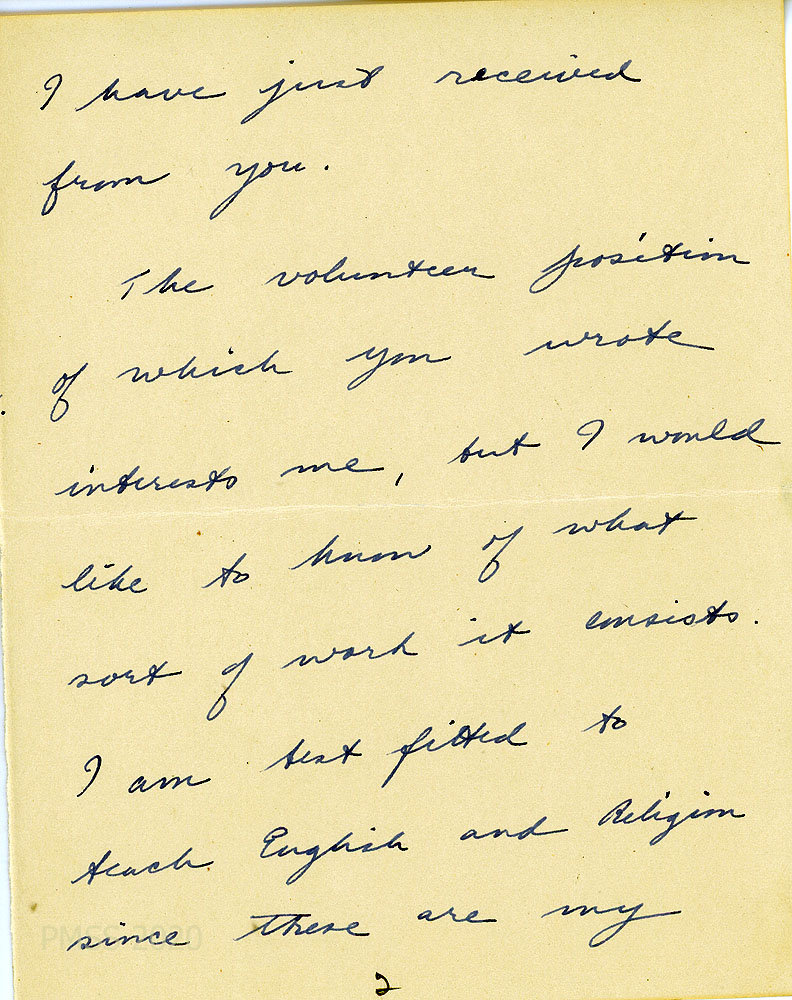 I have just received
from you.
The volunteer position
of which you wrote
interests me, but I would
like to know of what
sort of work it consists.
I am best fitted to
teach English and Religion
since these are my
2